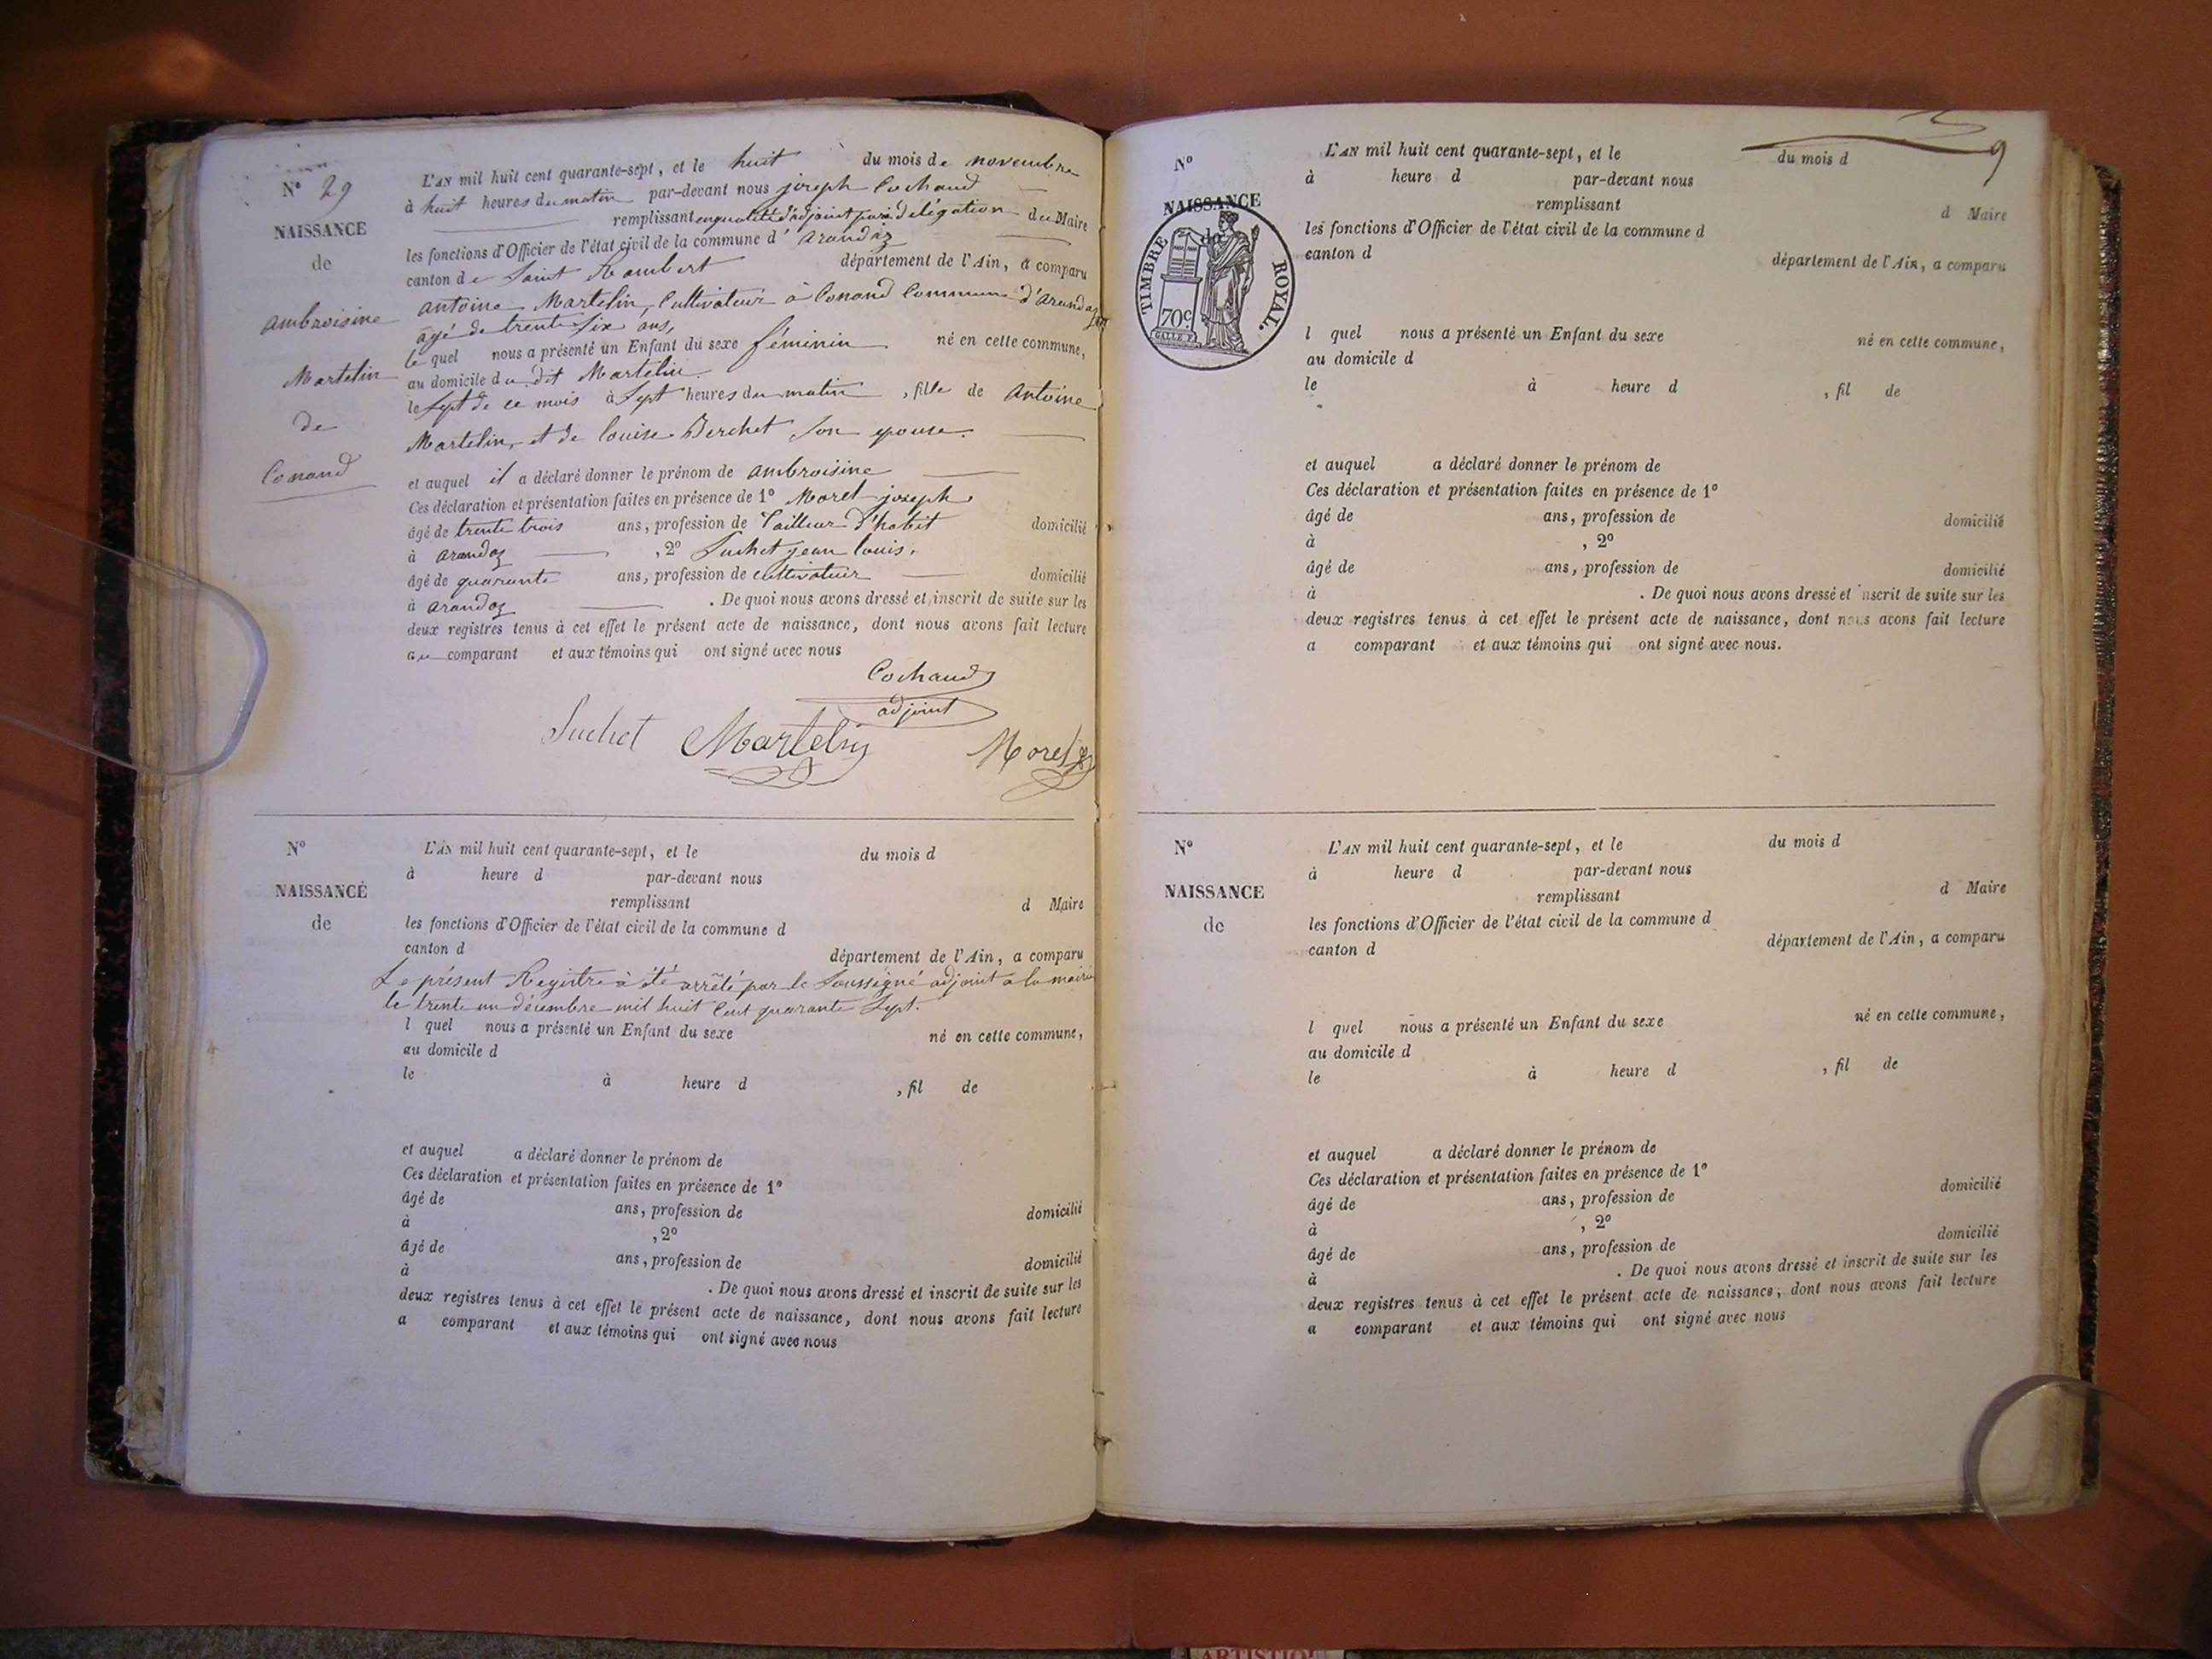 N° 29
NAISSANCE
de
ambroisine
Martelin
de
Conand
L'AN mil huit cent quarante-sept, et le huit du mois de novembre
à huit heures du matin par-devant nous joseph Cochaud
remplissant en qualité d'adjoint par délégation du Maire
les fonctions d'Officier de l'état civil de la commune d'arandaz
canton de Saint Rambert département de l'Ain, a comparu
antoine Martelin, Cultivateur à Conand Commune d'arandaz
âgé de trente six ans,
le quel nous a présenté un Enfant du sexe féminin né en cette commune,
au domicile du dit Martelin
le Sept de ce mois à Sept heures du matin, fille de Antoine
Martelin, et de louise Berchet Son epouse.
et auquel il a déclaré donner le prénom de ambroisine
Ces déclaration et présentation faites en présence de 1° Morel joseph
âgé de trente trois ans, profession de Tailleur d'habit domicilié
à arandaz , 2° Suchet jean louis,
âgé de quarante ans, profession de cultivateur domicilié
à arandaz . De quoi nous avons dressé et inscrit de suite sur les
deux registres tenus à cet effet le présent acte de naissance, dont nous avons fait lecture
au comparant et aux témoins qui ont signé avec nous
Cochaud
adjoint
Suchet Martelin Morel
N°
NAISSANCE
de
L'AN mil huit cent quarante-sept, et le du mois d
à heure d par-devant nous
remplissant d Maire
les fonctions d'Officier de l'état civil de la commune d
canton d département de l'Ain, a comparu
Le présent Registre à été arrêté par le Soussigné adjoint a la mairie
le trente un décembre mil huit Cent quarante Sept.
l quel nous a présenté un Enfant du sexe né en cette commune,
au domicile d
le à heure d , fil de
et auquel a déclaré donner le prénom de
Ces déclaration et présentation faites en présence de 1°
âgé de ans, profession de domicilié
à , 2°
âgé de ans, profession de domicilié
à . De quoi nous avons dressé et inscrit de suite sur les
deux registres tenus à cet effet le présent acte de naissance, dont nous avons fait lecture
a comparant et aux témoins qui ont signé avec nous
9
N°
NAISSANCE
TIMBRE ROYAL.
70c
L'AN mil huit cent quarante-sept, et le du mois d
à heure d par-devant nous
remplissant d Maire
les fonctions d'Officier de l'état civil de la commune d
canton d département de l'Ain, a comparu
l quel nous a présenté un Enfant du sexe né en cette commune,
au domicile d
le à heure d , fil de
et auquel a déclaré donner le prénom de
Ces déclaration et présentation faites en présence de 1°
âgé de ans, profession de domicilié
à , 2°
âgé de ans, profession de domicilié
à . De quoi nous avons dressé et inscrit de suite sur les
deux registres tenus à cet effet le présent acte de naissance, dont nous avons fait lecture
a comparant et aux témoins qui ont signé avec nous.
N°
NAISSANCE
de
L'AN mil huit cent quarante-sept, et le du mois d
à heure d par-devant nous
remplissant d Maire
les fonctions d'Officier de l'état civil de la commune d
canton d département de l'Ain, a comparu
l quel nous a présenté un Enfant du sexe né en cette commune,
au domicile d
le à heure d , fil de
et auquel a déclaré donner le prénom de
Ces déclaration et présentation faites en présence de 1°
âgé de ans, profession de domicilié
à , 2°
âgé de ans, profession de domicilié
à . De quoi nous avons dressé et inscrit de suite sur les
deux registres tenus à cet effet le présent acte de naissance, dont nous avons fait lecture
a comparant et aux témoins qui ont signé avec nous